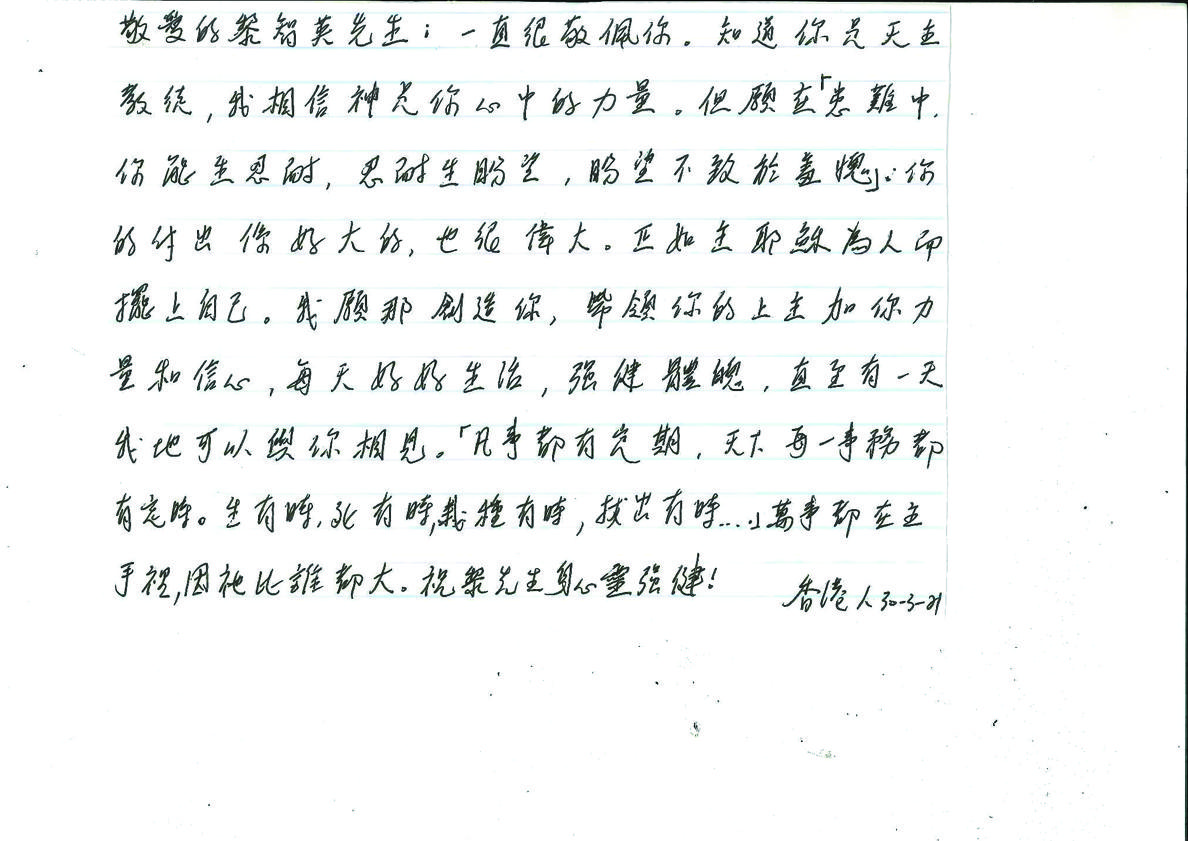 敬愛的黎智英先生：一直很敬佩你。知道你是天主
教徒，我相信神是你心中的力量。但願在「患難中，
你能生忍耐，忍耐生盼望，盼望不致於羞愧」：你
的付出係好大的，也很偉大。正如主耶穌為人而
擺上自己。我願那創造你，帶領你的上主加你力
量和信心，每天好好生活，强健體魄，直至有一天
我地可以與你相見。「凡事都有定期，天下每一事務都
有定時。生有時，死有時，栽種有時，拔出有時...」萬事都在主
手裡，因祂比誰都大。祝黎先生身心靈强健！
香港人 30-3-21